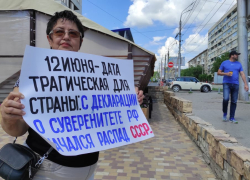 12 ИЮНЯ-ДАТА
ТРАГИЧЕСКАЯ ДЛЯ
СТРАНЫ: С ДЕКЛАРАЦИИ
О СУВЕРЕНИТЕТЕ РФ
НАЧАЛСЯ РАСПАД СССР!